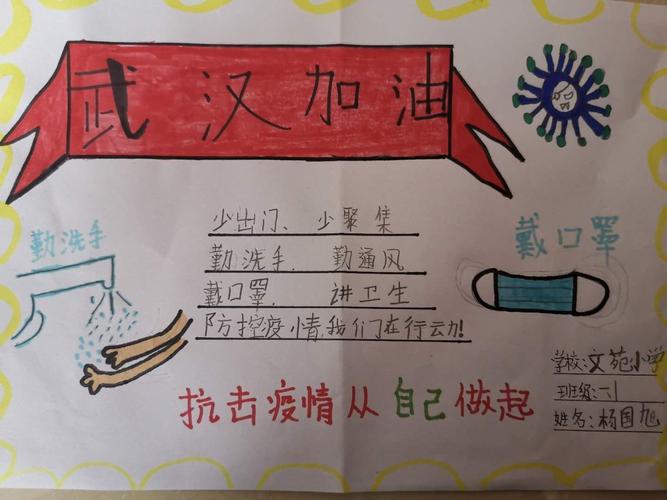 武汉加油
勤洗手
少出门、少聚集
勤洗手、勤通风
戴口罩、讲卫生
防控疫情,我们在行动!
戴口罩
抗击疫情从自己做起
学校:文苑小学
班级:六1
姓名:杨国旭